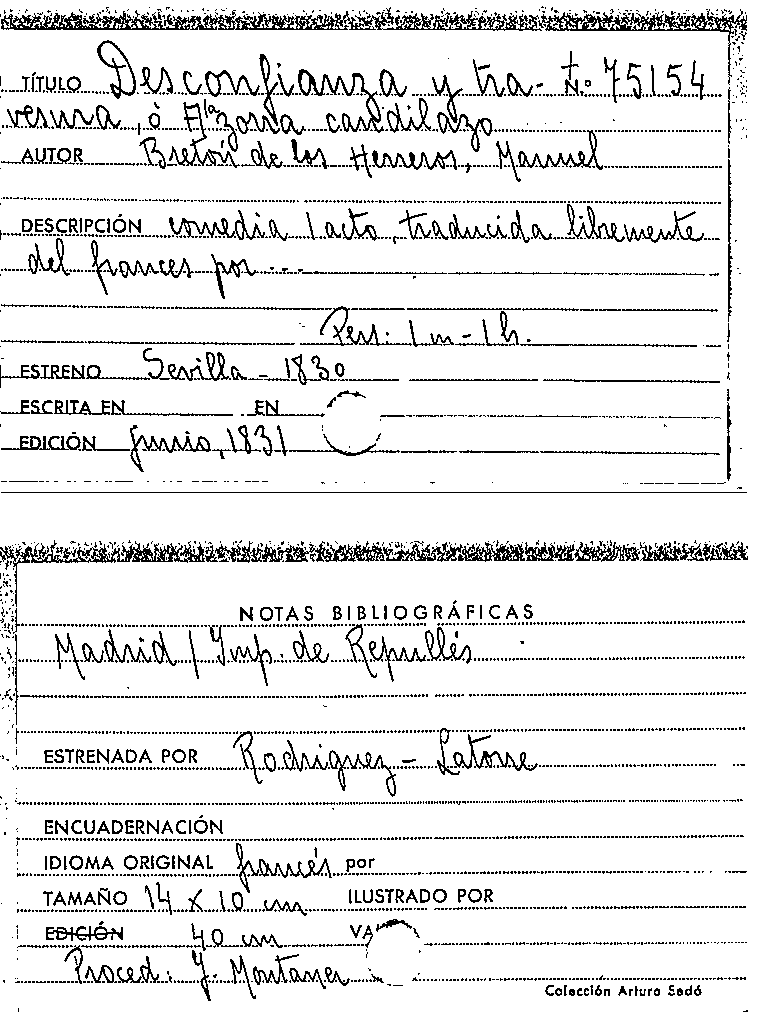 TÍTULO Desconfianza y tra- N.º 75154
vesura, ò A la zorra candilazo
AUTOR Bretón de los Herreros, Manuel
DESCRIPCIÓN comedia 1 acto, traducida libremente
del frances por ---
Pers: 1 m - 1 h.
ESTRENO Sevilla - 1830
ESCRITA EN EN
EDICIÓN junio, 1831
NOTAS BIBLIOGRÁFICAS
Madrid / Imp. de Repullés
ESTRENADA POR Rodriguez - Latorre
ENCUADERNACIÓN
IDIOMA ORIGINAL francés por
TAMAÑO 14 x 10 cm ILUSTRADO POR
EDICIÓN 40 cm VA
Proced: J. Montaner
Colección Arturo Sedó